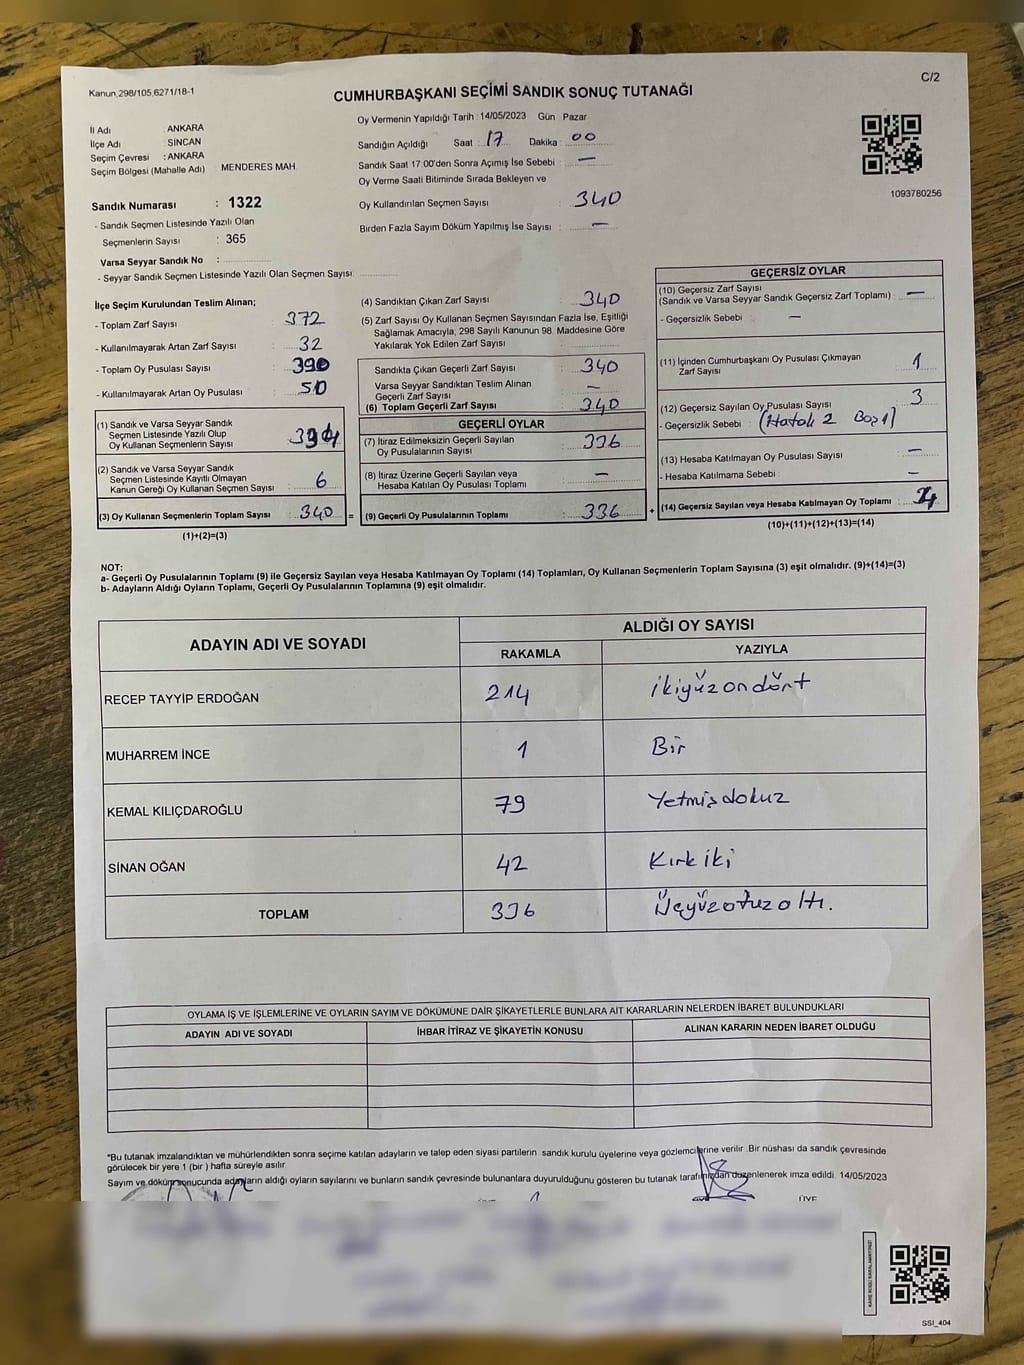 C/2
Kanun 298/105,6271/18-1
CUMHURBAŞKANI SEÇİMİ SANDIK SONUÇ TUTANAĞI
İl Adı : ANKARA
İlçe Adı : SİNCAN
Seçim Çevresi : ANKARA
Seçim Bölgesi (Mahalle Adı) : MENDERES MAH.
Sandık Numarası : 1322
- Sandık Seçmen Listesinde Yazılı Olan
Seçmenlerin Sayısı : 365
Varsa Seyyar Sandık No :
- Seyyar Sandık Seçmen Listesinde Yazılı Olan Seçmen Sayısı:
Oy Vermenin Yapıldığı Tarih : 14/05/2023 Gün : Pazar
Sandığın Açıldığı Saat : 17 Dakika : 00
Sandık Saat 17:00'den Sonra Açımış İse Sebebi : —
Oy Verme Saati Bitiminde Sırada Bekleyen ve
Oy Kullandırılan Seçmen Sayısı : 340
Birden Fazla Sayım Döküm Yapılmış İse Sayısı : —
1093780256
İlçe Seçim Kurulundan Teslim Alınan;
- Toplam Zarf Sayısı : 372
- Kullanılmayarak Artan Zarf Sayısı : 32
- Toplam Oy Pusulası Sayısı : 390
- Kullanılmayarak Artan Oy Pusulası : 50
(1) Sandık ve Varsa Seyyar Sandık
Seçmen Listesinde Yazılı Olup
Oy Kullanan Seçmenlerin Sayısı :
(2) Sandık ve Varsa Seyyar Sandık
Seçmen Listesinde Kayıtlı Olmayan
Kanun Gereği Oy Kullanan Seçmen Sayısı : 6
(3) Oy Kullanan Seçmenlerin Toplam Sayısı : 340 =
(1)+(2)=(3)
(4) Sandıktan Çıkan Zarf Sayısı : 340
(5) Zarf Sayısı Oy Kullanan Seçmen Sayısından Fazla İse, Eşitliği
Sağlamak Amacıyla, 298 Sayılı Kanunun 98. Maddesine Göre
Yakılarak Yok Edilen Zarf Sayısı :
Sandıkta Çıkan Geçerli Zarf Sayısı : 340
Varsa Seyyar Sandıktan Teslim Alınan
Geçerli Zarf Sayısı : —
(6) Toplam Geçerli Zarf Sayısı : 340
GEÇERLİ OYLAR
(7) İtiraz Edilmeksizin Geçerli Sayılan
Oy Pusulalarının Sayısı : 336
(8) İtiraz Üzerine Geçerli Sayılan veya
Hesaba Katılan Oy Pusulası Toplamı : —
(9) Geçerli Oy Pusulalarının Toplamı : 336 +
GEÇERSİZ OYLAR
(10) Geçersiz Zarf Sayısı
(Sandık ve Varsa Seyyar Sandık Geçersiz Zarf Toplamı) : —
- Geçersizlik Sebebi : —
(11) İçinden Cumhurbaşkanı Oy Pusulası Çıkmayan
Zarf Sayısı : 1
(12) Geçersiz Sayılan Oy Pusulası Sayısı : 3
- Geçersizlik Sebebi : (Hatalı 2 Boş 1)
(13) Hesaba Katılmayan Oy Pusulası Sayısı : —
- Hesaba Katılmama Sebebi : —
(14) Geçersiz Sayılan veya Hesaba Katılmayan Oy Toplamı : 4
(10)+(11)+(12)+(13)=(14)
NOT:
a- Geçerli Oy Pusulalarının Toplamı (9) ile Geçersiz Sayılan veya Hesaba Katılmayan Oy Toplamı (14) Toplamları, Oy Kullanan Seçmenlerin Toplam Sayısına (3) eşit olmalıdır. (9)+(14)=(3)
b- Adayların Aldığı Oyların Toplamı, Geçerli Oy Pusulalarının Toplamına (9) eşit olmalıdır.
ADAYIN ADI VE SOYADI ALDIĞI OY SAYISI
RAKAMLA YAZIYLA
RECEP TAYYİP ERDOĞAN 214 ikiyüzondört
MUHARREM İNCE 1 Bir
KEMAL KILIÇDAROĞLU 79 Yetmişdokuz
SİNAN OĞAN 42 Kırkiki
TOPLAM 336 Üçyüzotuzaltı.
OYLAMA İŞ VE İŞLEMLERİNE VE OYLARIN SAYIM VE DÖKÜMÜNE DAİR ŞİKAYETLERLE BUNLARA AİT KARARLARIN NELERDEN İBARET BULUNDUKLARI
ADAYIN ADI VE SOYADI İHBAR İTİRAZ VE ŞİKAYETİN KONUSU ALINAN KARARIN NEDEN İBARET OLDUĞU
*Bu tutanak imzalandıktan ve mühürlendikten sonra seçime katılan adayların ve talep eden siyasi partilerin sandık kurulu üyelerine veya gözlemcilerine verilir. Bir nüshası da sandık çevresinde
görülecek bir yere 1 (bir ) hafta süreyle asılır.
Sayım ve döküm sonucunda adayların aldığı oyların sayılarını ve bunların sandık çevresinde bulunanlara duyurulduğunu gösteren bu tutanak tarafımızdan düzenlenerek imza edildi. 14/05/2023
ÜYE
SSI_404